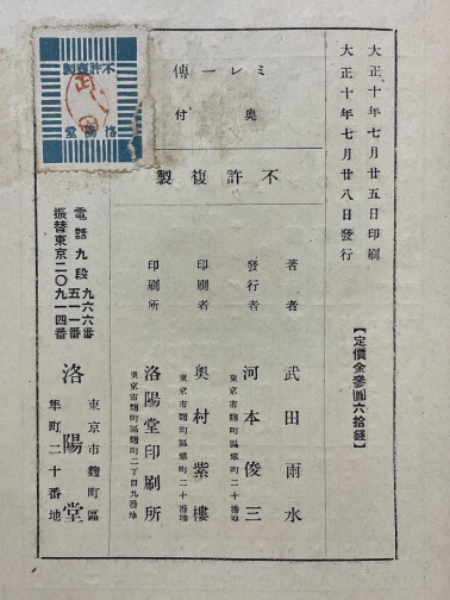 大正十年七月廿五日印刷
大正十年七月廿八日發行
【定價金參圓六拾錢】
ミレー傳
奥付
不許複製
著者 武田雨水
發行者 河本俊三
東京市麹町區隼町二十番地
印刷者 奥村紫樓
東京市麹町區隼町二十番地
印刷所 洛陽堂印刷所
東京市麹町區麹町二丁目九番地
東京市麹町區
隼町二十番地
洛陽堂
電話九段 九六六番
五一一番
振替東京二〇九一四番
不許複製
洛陽堂